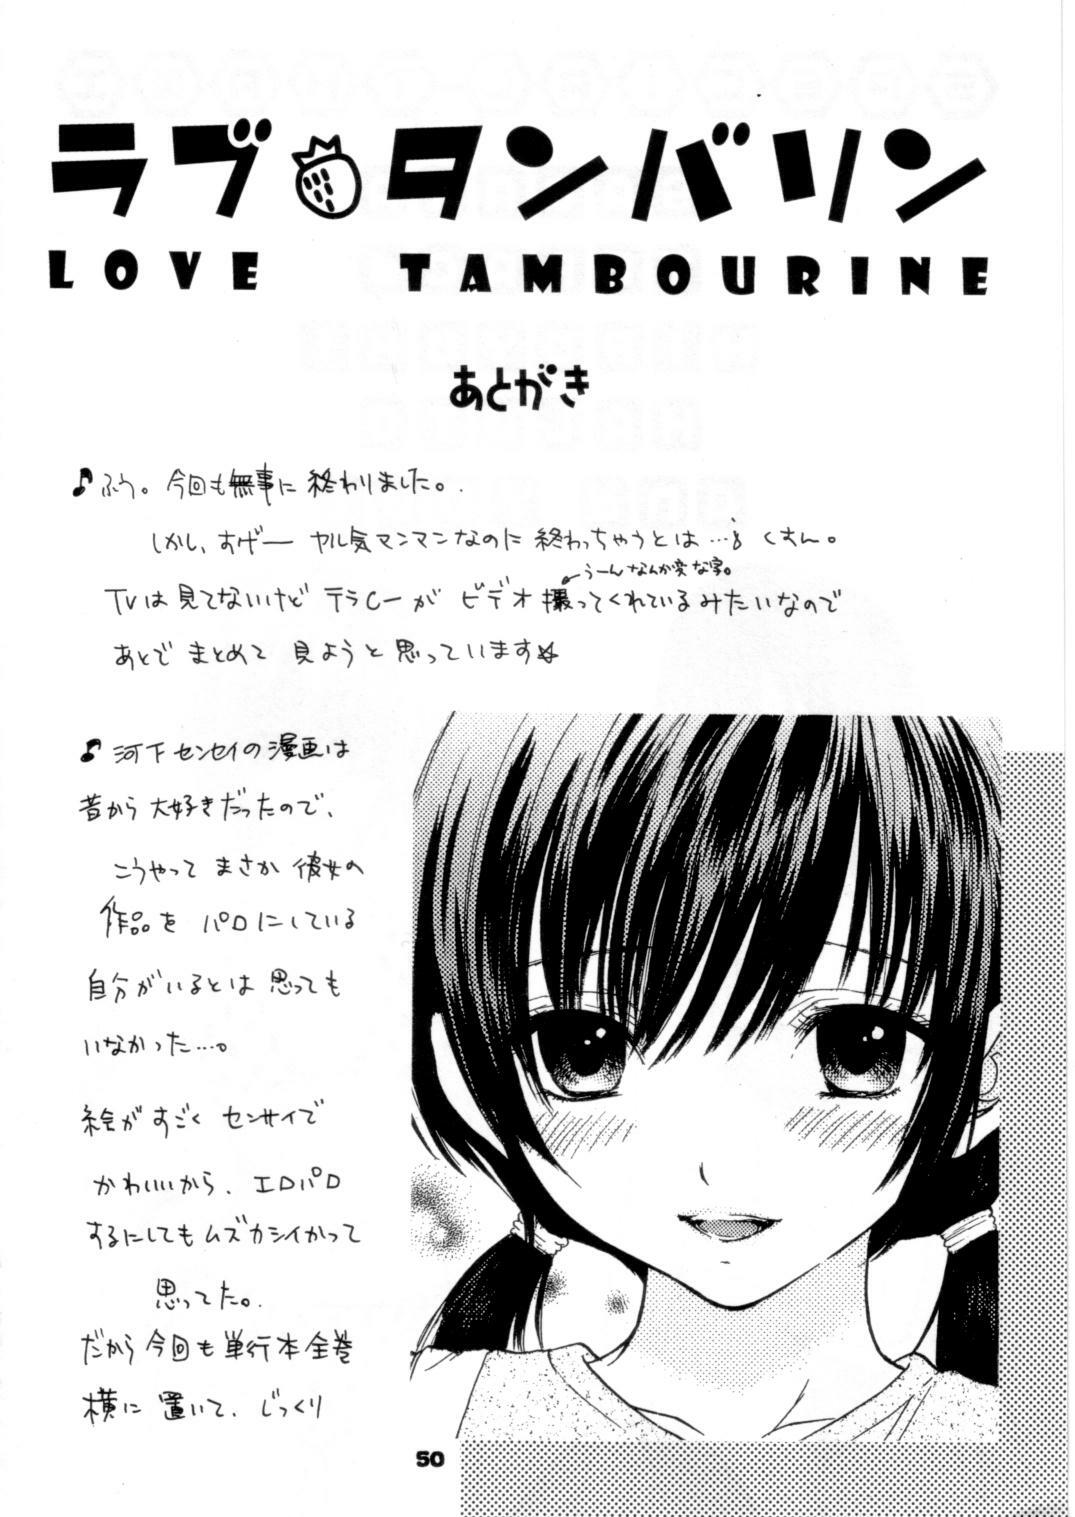 ラブ タンバリン
LOVE TAMBOURINE
あとがき
♪ふう。今回も無事に終わりました。
しかし、すげー ヤル気マンマンなのに 終わっちゃうとは…
うーんなんか変な字。
TVは見てないけど テラCーが ビデオ撮ってくれているみたいなので
あとで まとめて 見ようと思っています☆
♪河下センセイの漫画は
昔から大好きだったので、
こうやって まさか 彼女の
作品を パロにしている
自分がいるとは 思っても
いなかった…。
絵が すごく センサイで
かわいいから、エロパロ
するにしてもムズカシイかって
思ってた。
だから今回も単行本全巻
横に置いて、じっくり
50